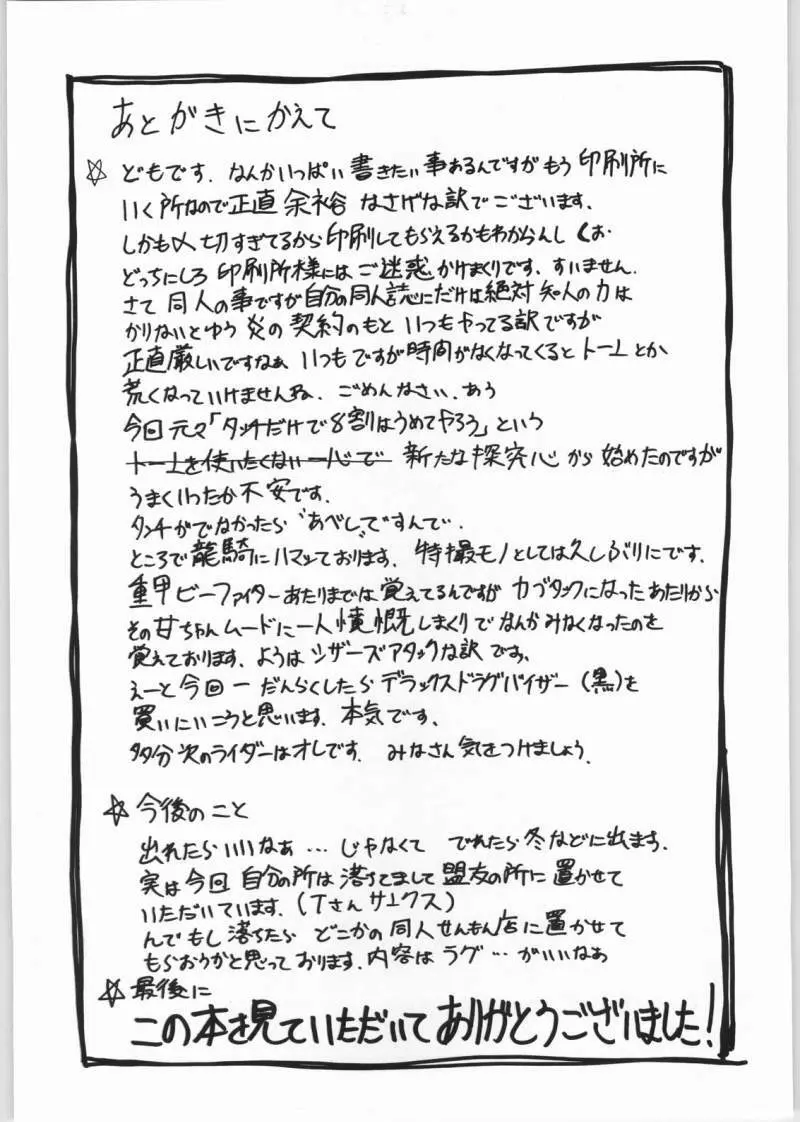 あとがきにかえて
☆ どもです。なんかいっぱい書きたい事あるんですがもう印刷所に
いく所なので正直余裕なさげな訳でございます。
しかも〆切すぎてるから印刷してもらえるかもわからんし くお.
どっちにしろ印刷所様にはご迷惑かけまくりです、すいません.
さて 同人の事ですが自分の同人誌にだけは絶対知人の力は
かりないとゆう炎の契約のもと いつもやってる訳ですが
正直厳しいですなぁ いつもですが時間がなくなってくるとトーンとか
荒くなっていけませんね. ごめんなさい.あう
今回元々「タッチだけで8割はうめてやろう」という
トーンを使いたくない一心で 新たな探究心から始めたのですが
うまくいったか不安です.
タッチがでなかったら“あべし”ですんで.
ところで龍騎にハマッております. 特撮モノとしては久しぶりにです.
重甲ビーファイターあたりまでは覚えてるんですがカブタックになったあたりから
その甘ちゃんムードに一人憤慨しまくりでなんかみなくなったのを
覚えております、ようはシザーズアタックな訳ですよ。
えーと今回一だんらくしたらデラックスドラグバイザー(黒)を
買いにいこうと思います.本気です.
多分次のライダーはオレです. みなさん気をつけましょう.
☆ 今後のこと
出れたらいいなぁ…じゃなくて でれたら冬などに出ます.
実は今回 自分の所は落ちてまして盟友の所に置かせて
いただいています.(Tさんサンクス)
んでもし落ちたら どこかの同人せんもん店に置かせて
もらおうかと思っております.内容はラグ…がいいなあ
☆ 最後に
この本を見ていただいてありがとうございました!